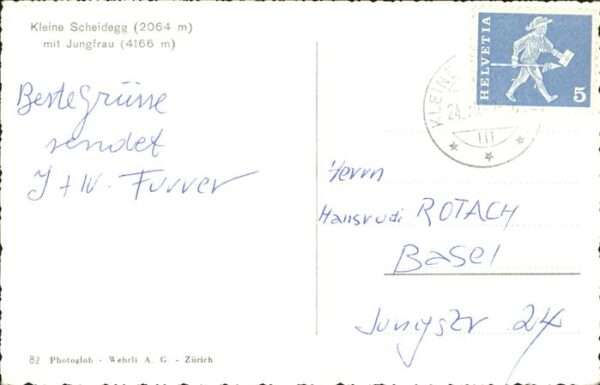 Kleine Scheidegg (2064 m)
mit Jungfrau (4166 m)
HELVETIA
5
KLEINE
24.
Beste Grüsse
sendet
J + W. Furrer
Herrn
Hansrudi ROTACH
Basel
24
82 Photoglob - Wehrli A. G. - Zürich